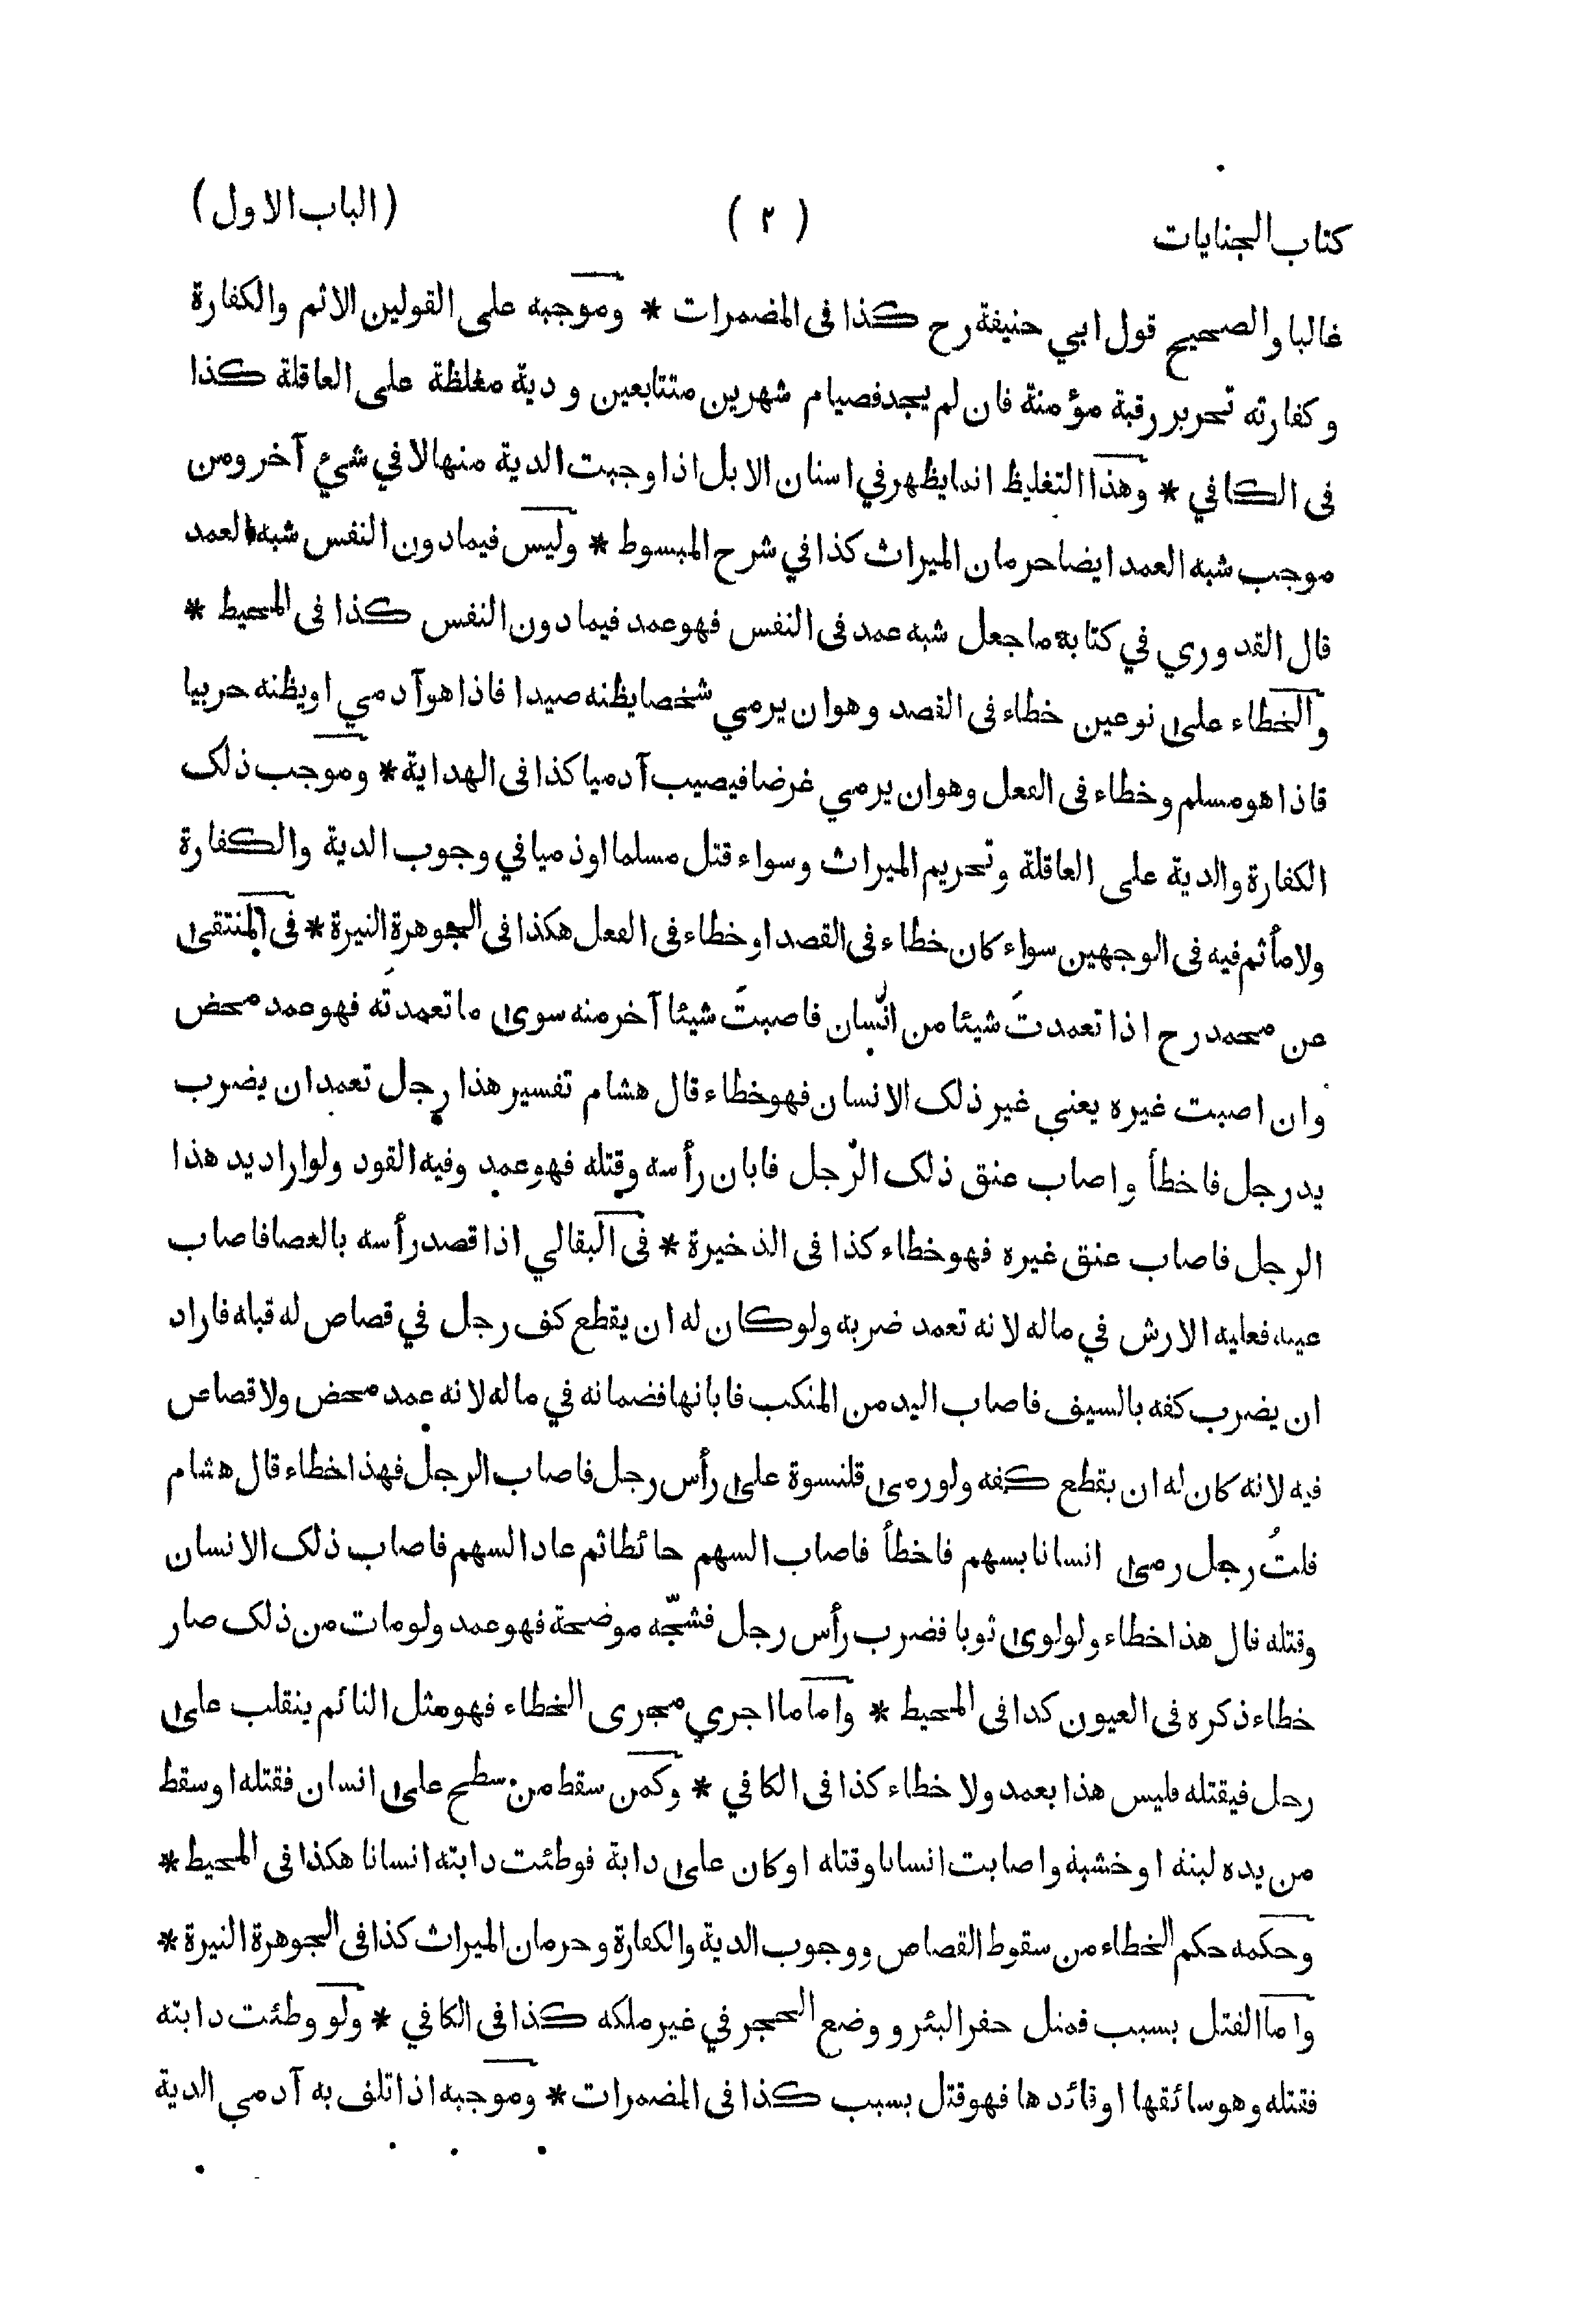 كتاب الجنايات ( ٢ ) (الباب الاول)
غالبا والصحيح قول ابي حنيفة رح كذا فى المضمرات * وموجبه على القولين الاثم والكفارة
وكفارته تحرير رقبة مؤمنة فان لم يجد فصيام شهرين متتابعين ودية مغلظة على العاقلة كذا
فى الكافي * وهذا التغليظ انما يظهر في اسنان الابل اذا وجبت الدية منها لا في شيء آخر ومن
موجب شبه العمد ايضا حرمان الميراث كذا في شرح المبسوط * وليس فيما دون النفس شبه العمد
قال القدوري في كتابه ما جعل شبه عمد فى النفس فهو عمد فيما دون النفس كذا فى المحيط *
والخطاء على نوعين خطاء فى القصد وهو ان يرمي شخصا يظنه صيدا فاذا هو آدمي او يظنه حربيا
فاذا هو مسلم وخطاء فى الفعل وهو ان يرمي غرضا فيصيب آدميا كذا فى الهداية * وموجب ذلك
الكفارة والدية على العاقلة وتحريم الميراث وسواء قتل مسلما او ذميا في وجوب الدية والكفارة
ولا مأثم فيه فى الوجهين سواء كان خطاء فى القصد او خطاء فى الفعل هكذا فى الجوهرة النيرة * فى المنتقى
عن محمد رح اذا تعمدتَ شيئا من انسان فاصبتَ شيئا آخر منه سوى ما تعمدتَه فهو عمد محض
وان اصبت غيره يعني غير ذلك الانسان فهو خطاء قال هشام تفسير هذا رجل تعمد ان يضرب
يد رجل فاخطأ واصاب عنق ذلك الرجل فابان رأسه وقتله فهو عمد وفيه القود ولو اراد يد هذا
الرجل فاصاب عنق غيره فهو خطاء كذا فى الذخيرة * فى البقالي اذا قصد رأسه بالعصا فاصاب
عينه فعليه الارش في ماله لانه تعمد ضربه ولو كان له ان يقطع كف رجل في قصاص له قبله فاراد
ان يضرب كفه بالسيف فاصاب اليد من المنكب فابانها فضمانه في ماله لانه عمد محض ولا قصاص
فيه لانه كان له ان يقطع كفه ولو رمى قلنسوة على رأس رجل فاصاب الرجل فهذا خطاء قال هشام
قلتُ رجل رمى انسانا بسهم فاخطأ فاصاب السهم حائطا ثم عاد السهم فاصاب ذلك الانسان
وقتله قال هذا خطاء ولو لوى ثوبا فضرب رأس رجل فشجّه موضحة فهو عمد ولو مات من ذلك صار
خطاء ذكره فى العيون كذا فى المحيط * واما ما اجري مجرى الخطاء فهو مثل النائم ينقلب على
رجل فيقتله فليس هذا بعمد ولا خطاء كذا فى الكافي * وكمن سقط من سطح على انسان فقتله او سقط
من يده لبنة او خشبة واصابت انسانا وقتله او كان على دابة فوطئت دابته انسانا هكذا فى المحيط *
وحكمه حكم الخطاء من سقوط القصاص ووجوب الدية والكفارة وحرمان الميراث كذا فى الجوهرة النيرة *
واما القتل بسبب فمثل حفر البئر و وضع الحجر في غير ملكه كذا فى الكافي * ولو وطئت دابته
فقتله وهو سائقها او قائدها فهو قتل بسبب كذا فى المضمرات * وموجبه اذا تلف به آدمي الدية